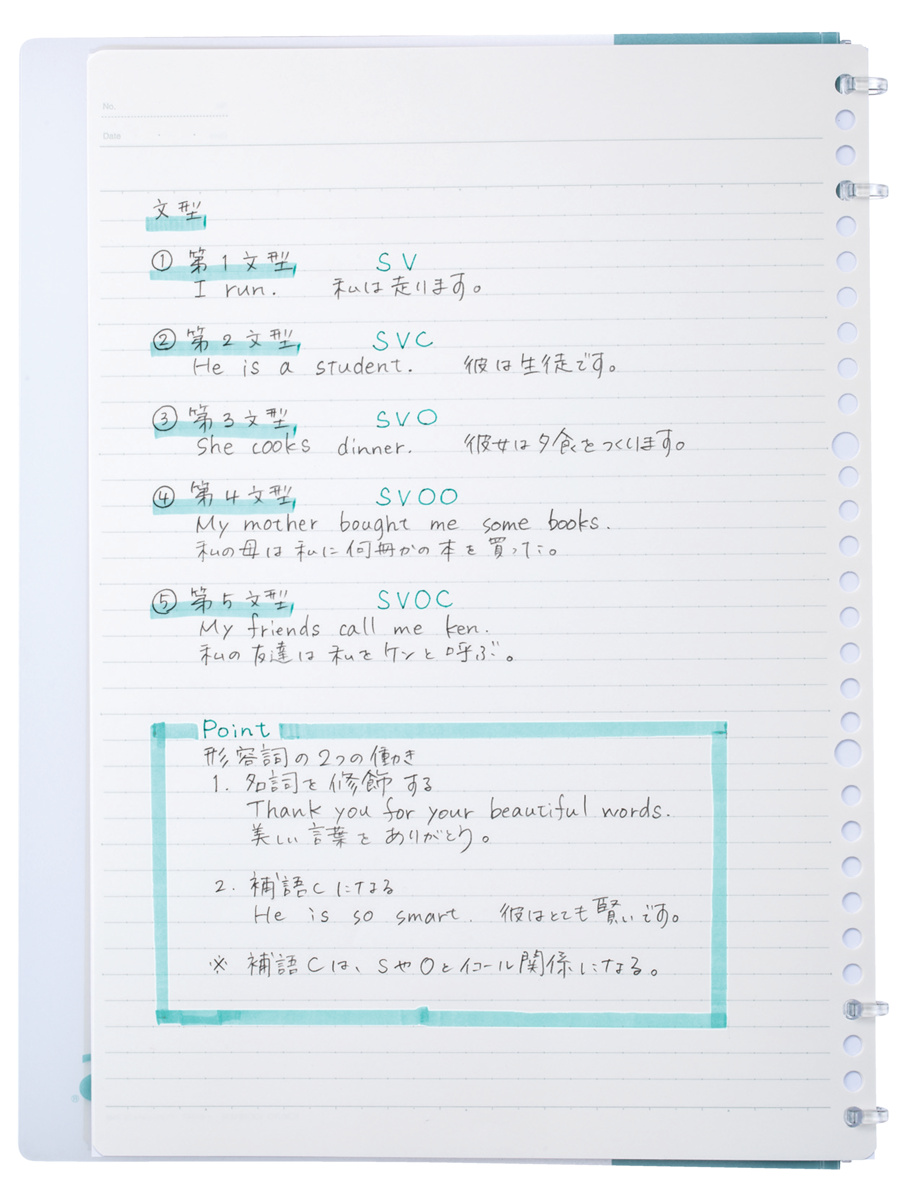 No.
Date
文型
① 第1文型 SV
I run. 私は走ります。
② 第2文型 SVC
He is a student. 彼は生徒です。
③ 第3文型 SVO
She cooks dinner. 彼女は夕食をつくります。
④ 第4文型 SVOO
My mother bought me some books.
私の母は私に何冊かの本を買った。
⑤ 第5文型 SVOC
My friends call me ken.
私の友達は私をケンと呼ぶ。
Point
形容詞の2つの働き
1. 名詞を修飾する
Thank you for your beautiful words.
美しい言葉をありがとう。
2. 補語Cになる
He is so smart. 彼はとても賢いです。
※ 補語Cは、SやOとイコール関係になる。